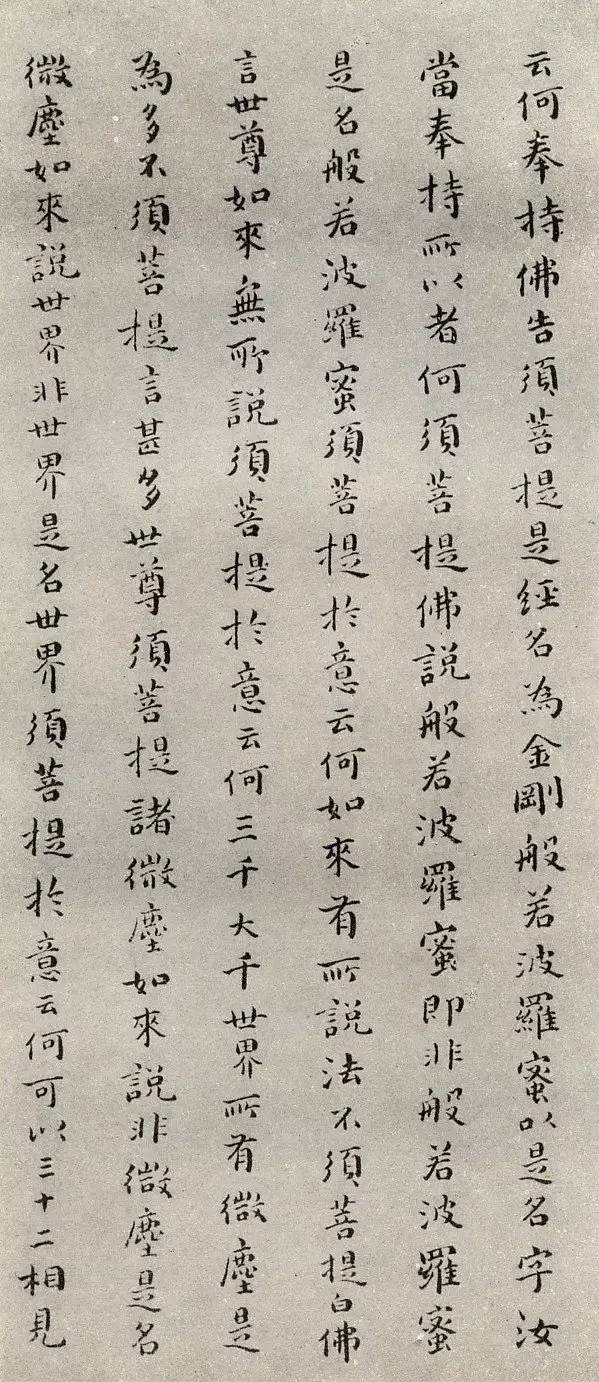 云何奉持佛告須菩提是經名為金剛般若波羅蜜以是名字汝
當奉持所以者何須菩提佛說般若波羅蜜即非般若波羅蜜
是名般若波羅蜜須菩提於意云何如來有所說法不須菩提白佛
言世尊如來無所說須菩提於意云何三千大千世界所有微塵是
為多不須菩提言甚多世尊須菩提諸微塵如來說非微塵是名
微塵如來說世界非世界是名世界須菩提於意云何可以三十二相見